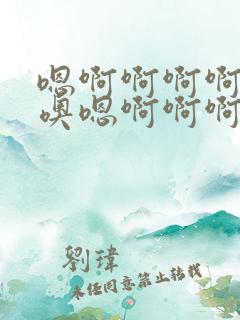 嗯啊啊啊啊
噢嗯啊啊啊
劉瑋
未经同意禁止转载